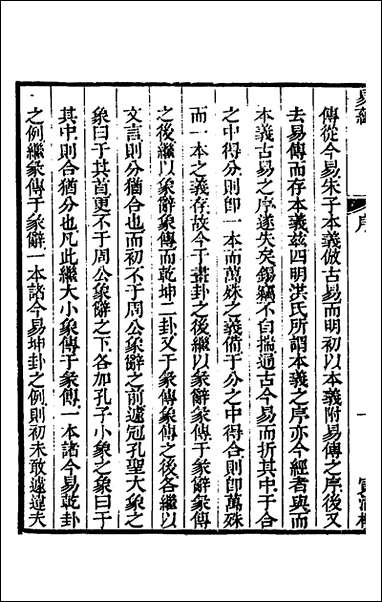 傳從今易朱子本義倣古易而明初以本義附易傳之序後又
去易傳而存本義兹四明洪氏所謂本義之序亦今經者與而
本義古易之序遂失矣錫竊不自揣通古今易而折其中于合
之中得分則卽一本而萬殊之義備于分之中得合則卽萬殊
而一本之義存故今于畫卦之後繼以彖辭彖傳于彖傳
之後繼以象辭象傳而乾坤二卦又于彖傳象傳之後各繼以
文言則分猶合也而初不于周公象辭之前遽冠孔聖大象之
象曰于其首更不于周公象辭之下各加孔子小象之象曰于
其中則合猶分也凡此繼大小象傳于彖傳一本諸今易乾卦
之例繼彖傳于彖辭一本諸今易坤卦之例則初未敢遽違夫
序
一